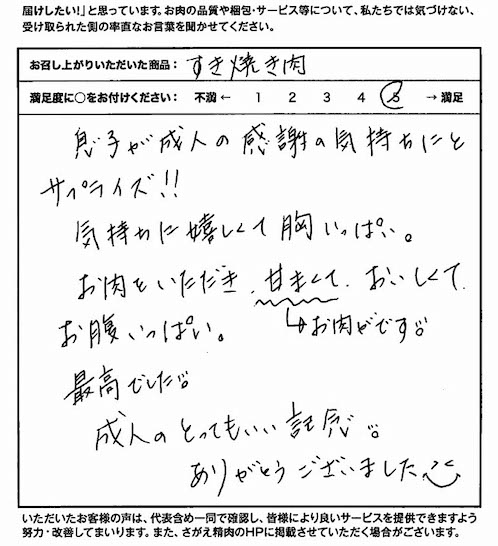 届けしたい!」と思っています。お肉の品質や梱包・サービス等について、私たちでは気づけない、
受け取られた側の率直なお言葉を聞かせてください。
お召し上がりいただいた商品: すき焼き肉
満足度に○をお付けください: 不満 ← 1 2 3 4 5 → 満足
息子が成人の感謝の気持ちにと
サプライズ!!
気持ちに嬉しくて胸いっぱい。
お肉をいただき、甘まくて、おいしくて、
お腹いっぱい。 ↳お肉がです。
最高でした。
成人のとってもいい記念。
ありがとうございました
いただいたお客様の声は、代表含め一同で確認し、皆様により良いサービスを提供できますよう
努力・改善してまいります。また、さがえ精肉のHPに掲載させていただく場合がございます。